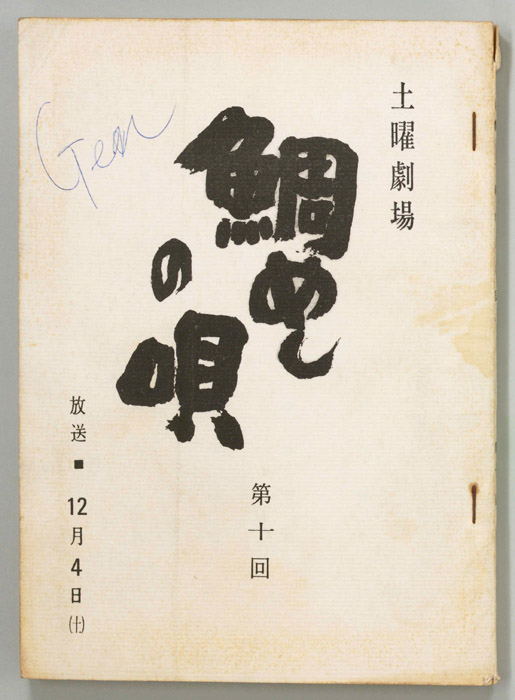 土曜劇場
鯛めしの唄
第十回
放送■12月4日(土)